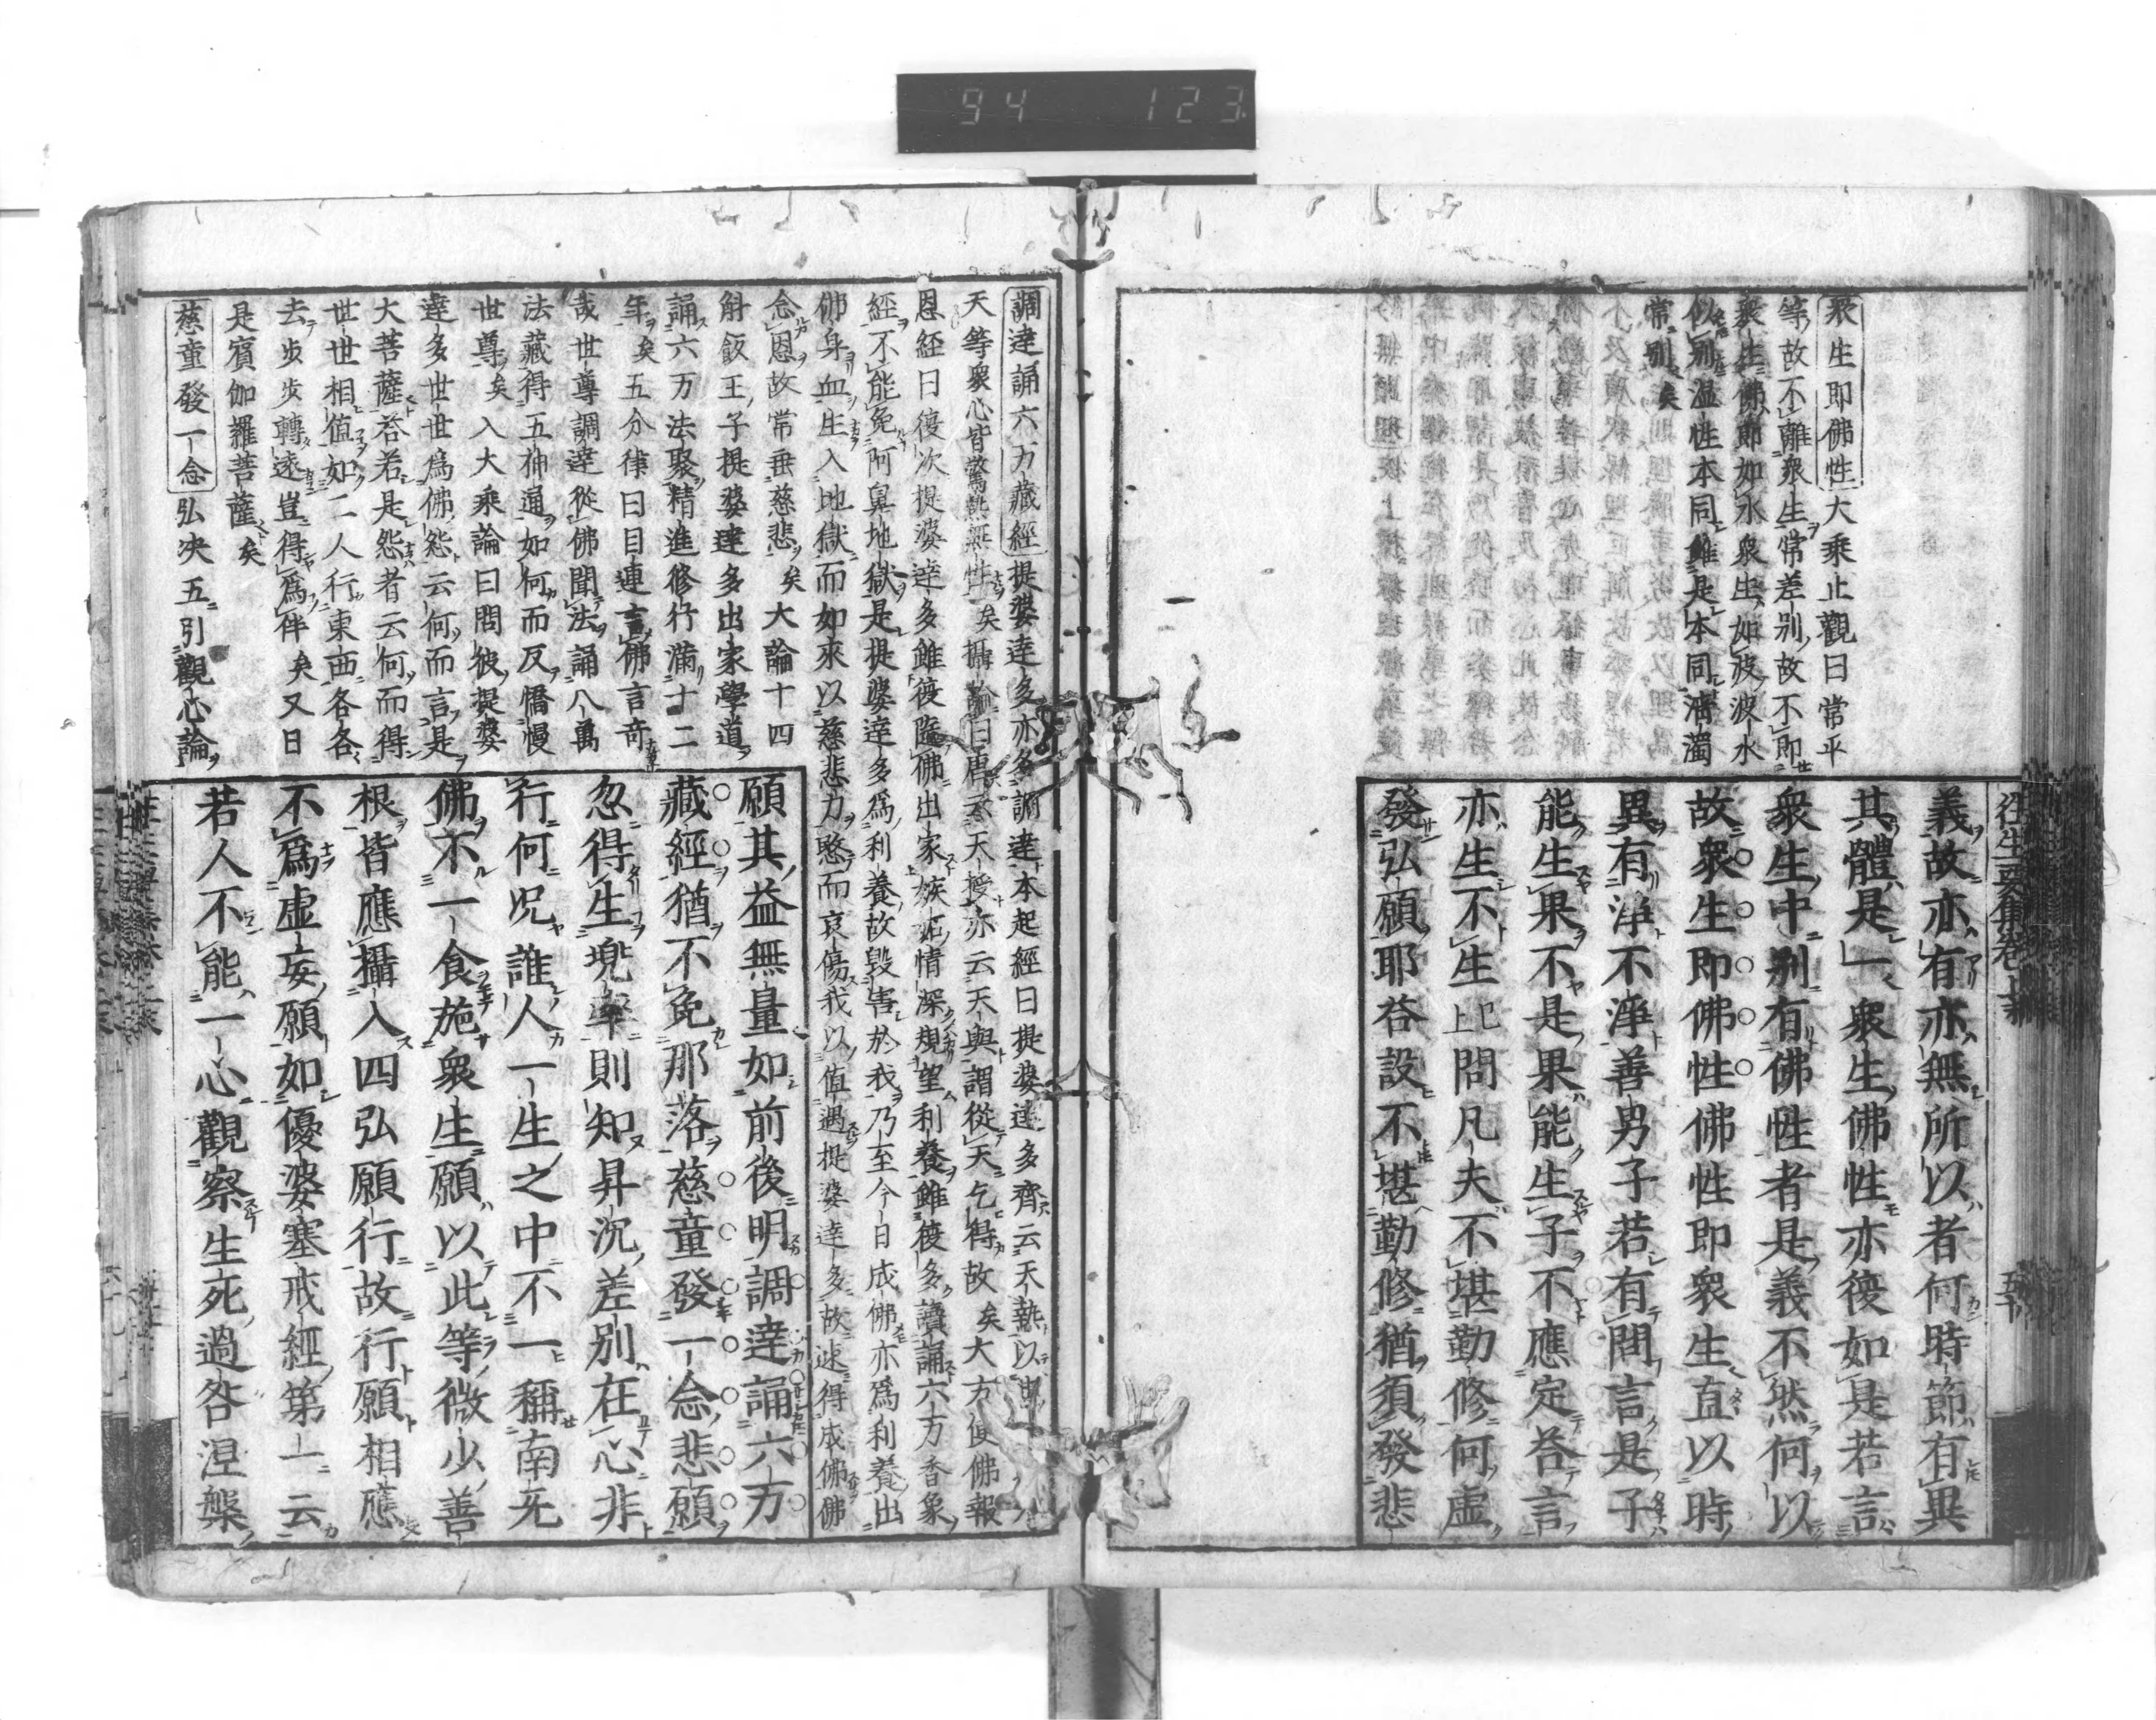 94 123
衆生即佛性大乘止觀曰常平
等故不離衆生常差別故不即
衆生佛即如水衆生如波波水
似別溫性本同雖是本同淸濁
常別矣
往生要集卷上末
五十
義故亦有亦無所以者何時節有異
其體是一衆生佛性亦復如是若言
衆生中別有佛性者是義不然何以
故衆生即佛性佛性即衆生直以時
異有淨不淨善男子若有問言是子
能生果不是果能生子不應定答言
亦生不生已上問凡夫不堪勤修何虛
發弘願耶答設不堪勤修猶須發悲
調達誦六万藏經提婆達多亦多調達本起經曰提婆達多齊云天熱以
天等衆心皆驚熱無性矣攝論曰唐云天授亦云天與謂從天乞得故矣大方便佛報
恩經曰復次提婆達多雖復隨佛出家嫉妬情深規望利養雖復多讀誦六万香象
經不能免阿鼻地獄是提婆達多爲利養故毀害於我乃至今日成佛亦爲利養出
佛身血生入地獄而如來以慈悲力愍而哀傷我以值遇提婆達多故速得成佛佛
念恩故常垂慈悲矣大論十四
斛飯王子提婆達多出家學道
誦六万法聚精進修行滿十二
年矣五分律曰目連言佛言奇
哉世尊調達從佛聞法誦八萬
法藏得五神通如何而反憍慢
世尊矣入大乘論曰問彼提婆
達多世世爲佛怨云何而言是
大菩薩答若是怨者云何而得
世世相值如二人行東西各各
去步步轉遠豈得爲伴矣又曰
是賓伽羅菩薩矣
慈童發一念弘決五引觀心論
願其益無量如前後明調達誦六万
藏經猶不免那落慈童發一念悲願
忽得生兜率則知昇沉差別在心非
行何況誰人一生之中不一稱南无
佛不一食施衆生願以此等微少善
根皆應攝入四弘願行故行願相應
不爲虛妄願如優婆塞戒經第一云
若人不能一心觀察生死過咎涅槃